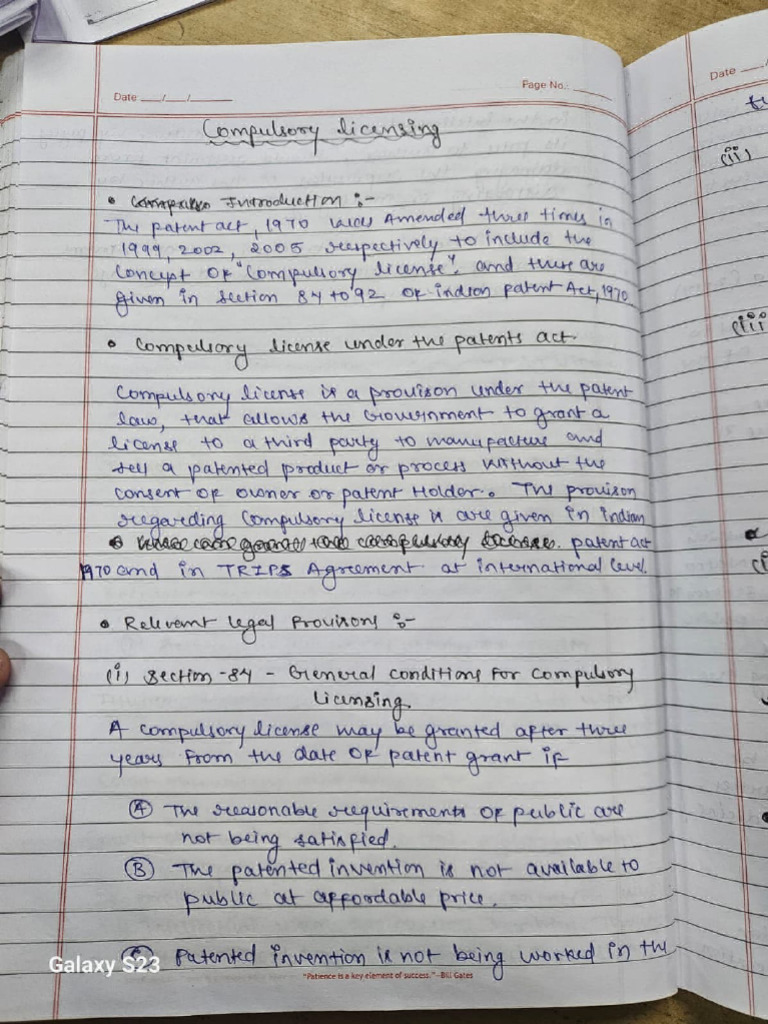 Date __/__/____
Page No.: ____
Compulsory licensing
• Introduction :-
The patent act, 1970 was Amended three times in
1999, 2002, 2005 respectively to include the
concept of "Compulsory license". and these are
given in section 84 to 92 of indian patent Act, 1970
• Compulsory license under the patents act.
Compulsory license is a provison under the patent
law, that allows the Government to grant a
license to a third party to manufacture and
sell a patented product or process without the
consent of owner or patent Holder. The provison
regarding Compulsory license is are given in indian
patent act
1970 and in TRIPS Agreement at international level.
• Relevent legal Provisons :-
(i) Section-84 - General conditions for compulsory
licensing.
A compulsory license may be granted after three
years from the date of patent grant if
(A) The reasonable requirements of public are
not being satisfied.
(B) The patented invention is not available to
public at affordable price.
Patented invention is not being worked in the
Galaxy S23
"Patience is a key element of success." -Bill Gates
Date __/
(ii)
(iii)